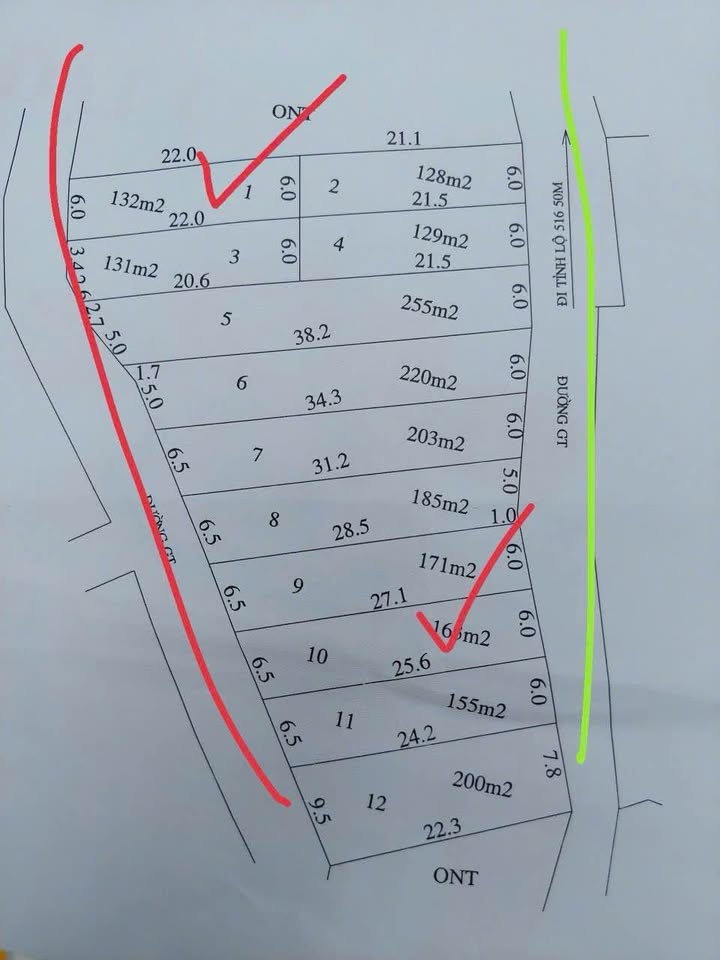 ONT
22.0
21.1
132m2
1
6.0
2
128m2
6.0
6.0
22.0
21.5
131m2
3
6.0
4
129m2
6.0
3.4
20.6
21.5
2.6
2.7
5
255m2
6.0
ĐI TỈNH LỘ 516 50M
5.0
38.2
1.7
5.0
6
220m2
6.0
ĐƯỜNG GT
34.3
6.5
7
203m2
6.0
31.2
8
185m2
5.0
1.0
6.5
28.5
ĐƯỜNG GT
9
171m2
6.0
6.5
27.1
10
6.0
6.5
25.6
11
155m2
6.0
6.5
24.2
12
200m2
7.8
9.5
22.3
ONT